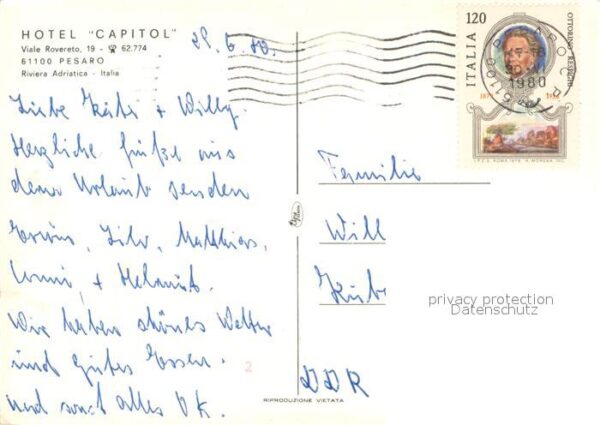 HOTEL "CAPITOL"
Viale Rovereto, 19 - ☎ 62.774
61100 PESARO
Riviera Adriatica - Italia
29.6.80.
Liebe Käthi + Willy.
Herzliche Grüße aus
dem Urlaub senden
Silv, Matthias,
+ Helmut.
Wir haben schönes Wetter
und gutes Essen.
und sonst alles OK.
2
ITALIA
120
OTTORINO RESPIGHI
61100 PESARO
1980
I.P.Z.S. ROMA 1979
Familie
Will
DDR
RIPRODUZIONE VIETATA
privacy protection
Datenschutz